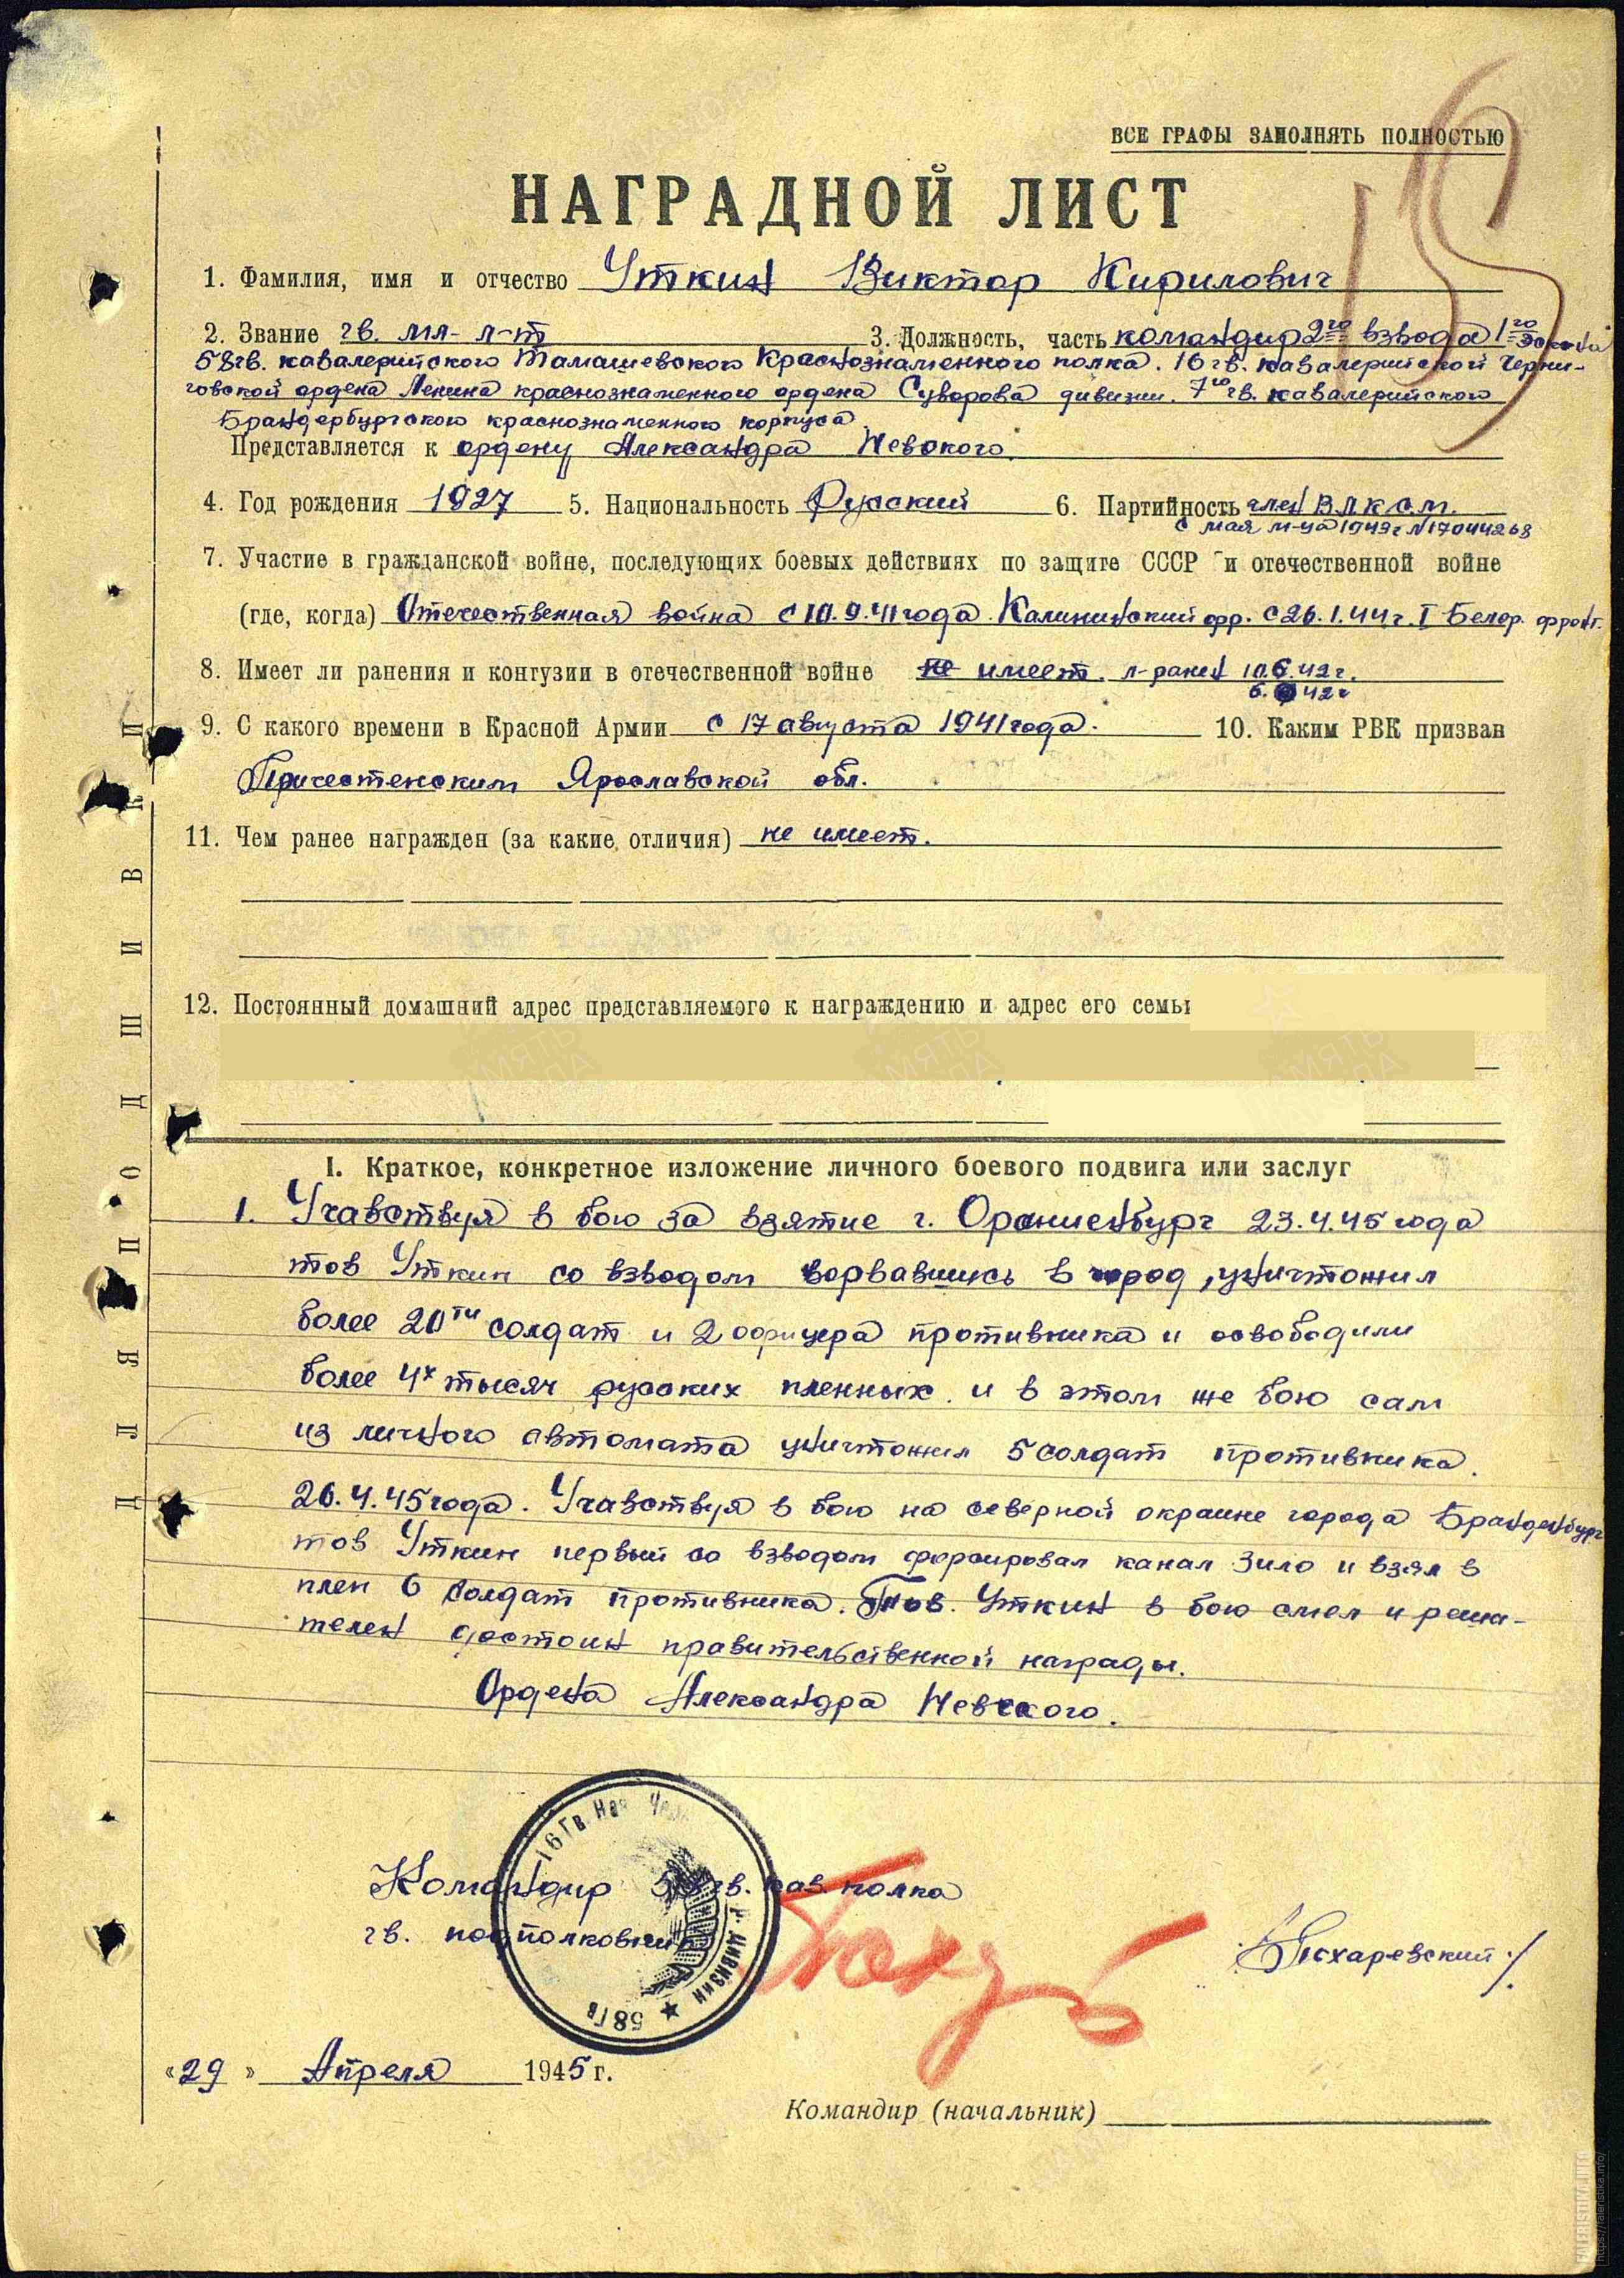 ВСЕ ГРАФЫ ЗАПОЛНЯТЬ ПОЛНОСТЬЮ
НАГРАДНОЙ ЛИСТ
1. Фамилия, имя и отчество Уткин Виктор Кирилович
2. Звание гв. мл- л-т 3. Должность, часть командир 2го взвода 1го
58 гв. кавалерийского Тамашевского Краснознаменного полка. 16 гв. кавалерийской Черни-
говской ордена Ленина краснознаменного ордена Суворова дивизии. 7го гв. кавалерийского
Брандербургского краснознаменного корпуса
Представляется к ордену Александра Невского.
4. Год рождения 1927 5. Национальность Русский 6. Партийность член ВЛКСМ.
с мая м-ца 1943г N17044268
7. Участие в гражданской войне, последующих боевых действиях по защите СССР и отечественной войне
(где, когда) Отечественная война с 10.9.41 года. Калининский фр. с 26.1.44г. I Белор. фронт.
8. Имеет ли ранения и контузии в отечественной войне не имеет. л-ранен 10.6.42г.
6. 42г
9. С какого времени в Красной Армии с 17 августа 1941 года. 10. Каким РВК призван
Ярославской обл.
11. Чем ранее награжден (за какие отличия) не имеет.
12. Постоянный домашний адрес представляемого к награждению и адрес его семьи
I. Краткое, конкретное изложение личного боевого подвига или заслуг
1. Учавствуя в бою за взятие г. Ораниенбург 23.4.45 года
тов Уткин со взводом ворвавшись в город, уничтожил
более 20ти солдат и 2 офицера противника и освободили
более 4х тысяч русских пленных. и в этом же бою сам
из личного автомата уничтожил 5 солдат противника.
26.4.45 года. Учавствуя в бою на северной окраине города Бранденбург
тов Уткин первый со взводом форсировал канал Зило и взял в
плен 6 солдат противника. Тов. Уткин в бою смел и реши-
телен достоин правительственной награды.
Ордена Александра Невского.
Командир 58 гв. кав. полка
гв. подполковник
16 Гв. Кав. Черн
дивизии
58 Гв
"29" Апреля 1945 г.
Командир (начальник)
ДЛЯ ПОДШИВКИ
FALERISTIKA.INFO
https://faleristika.info/